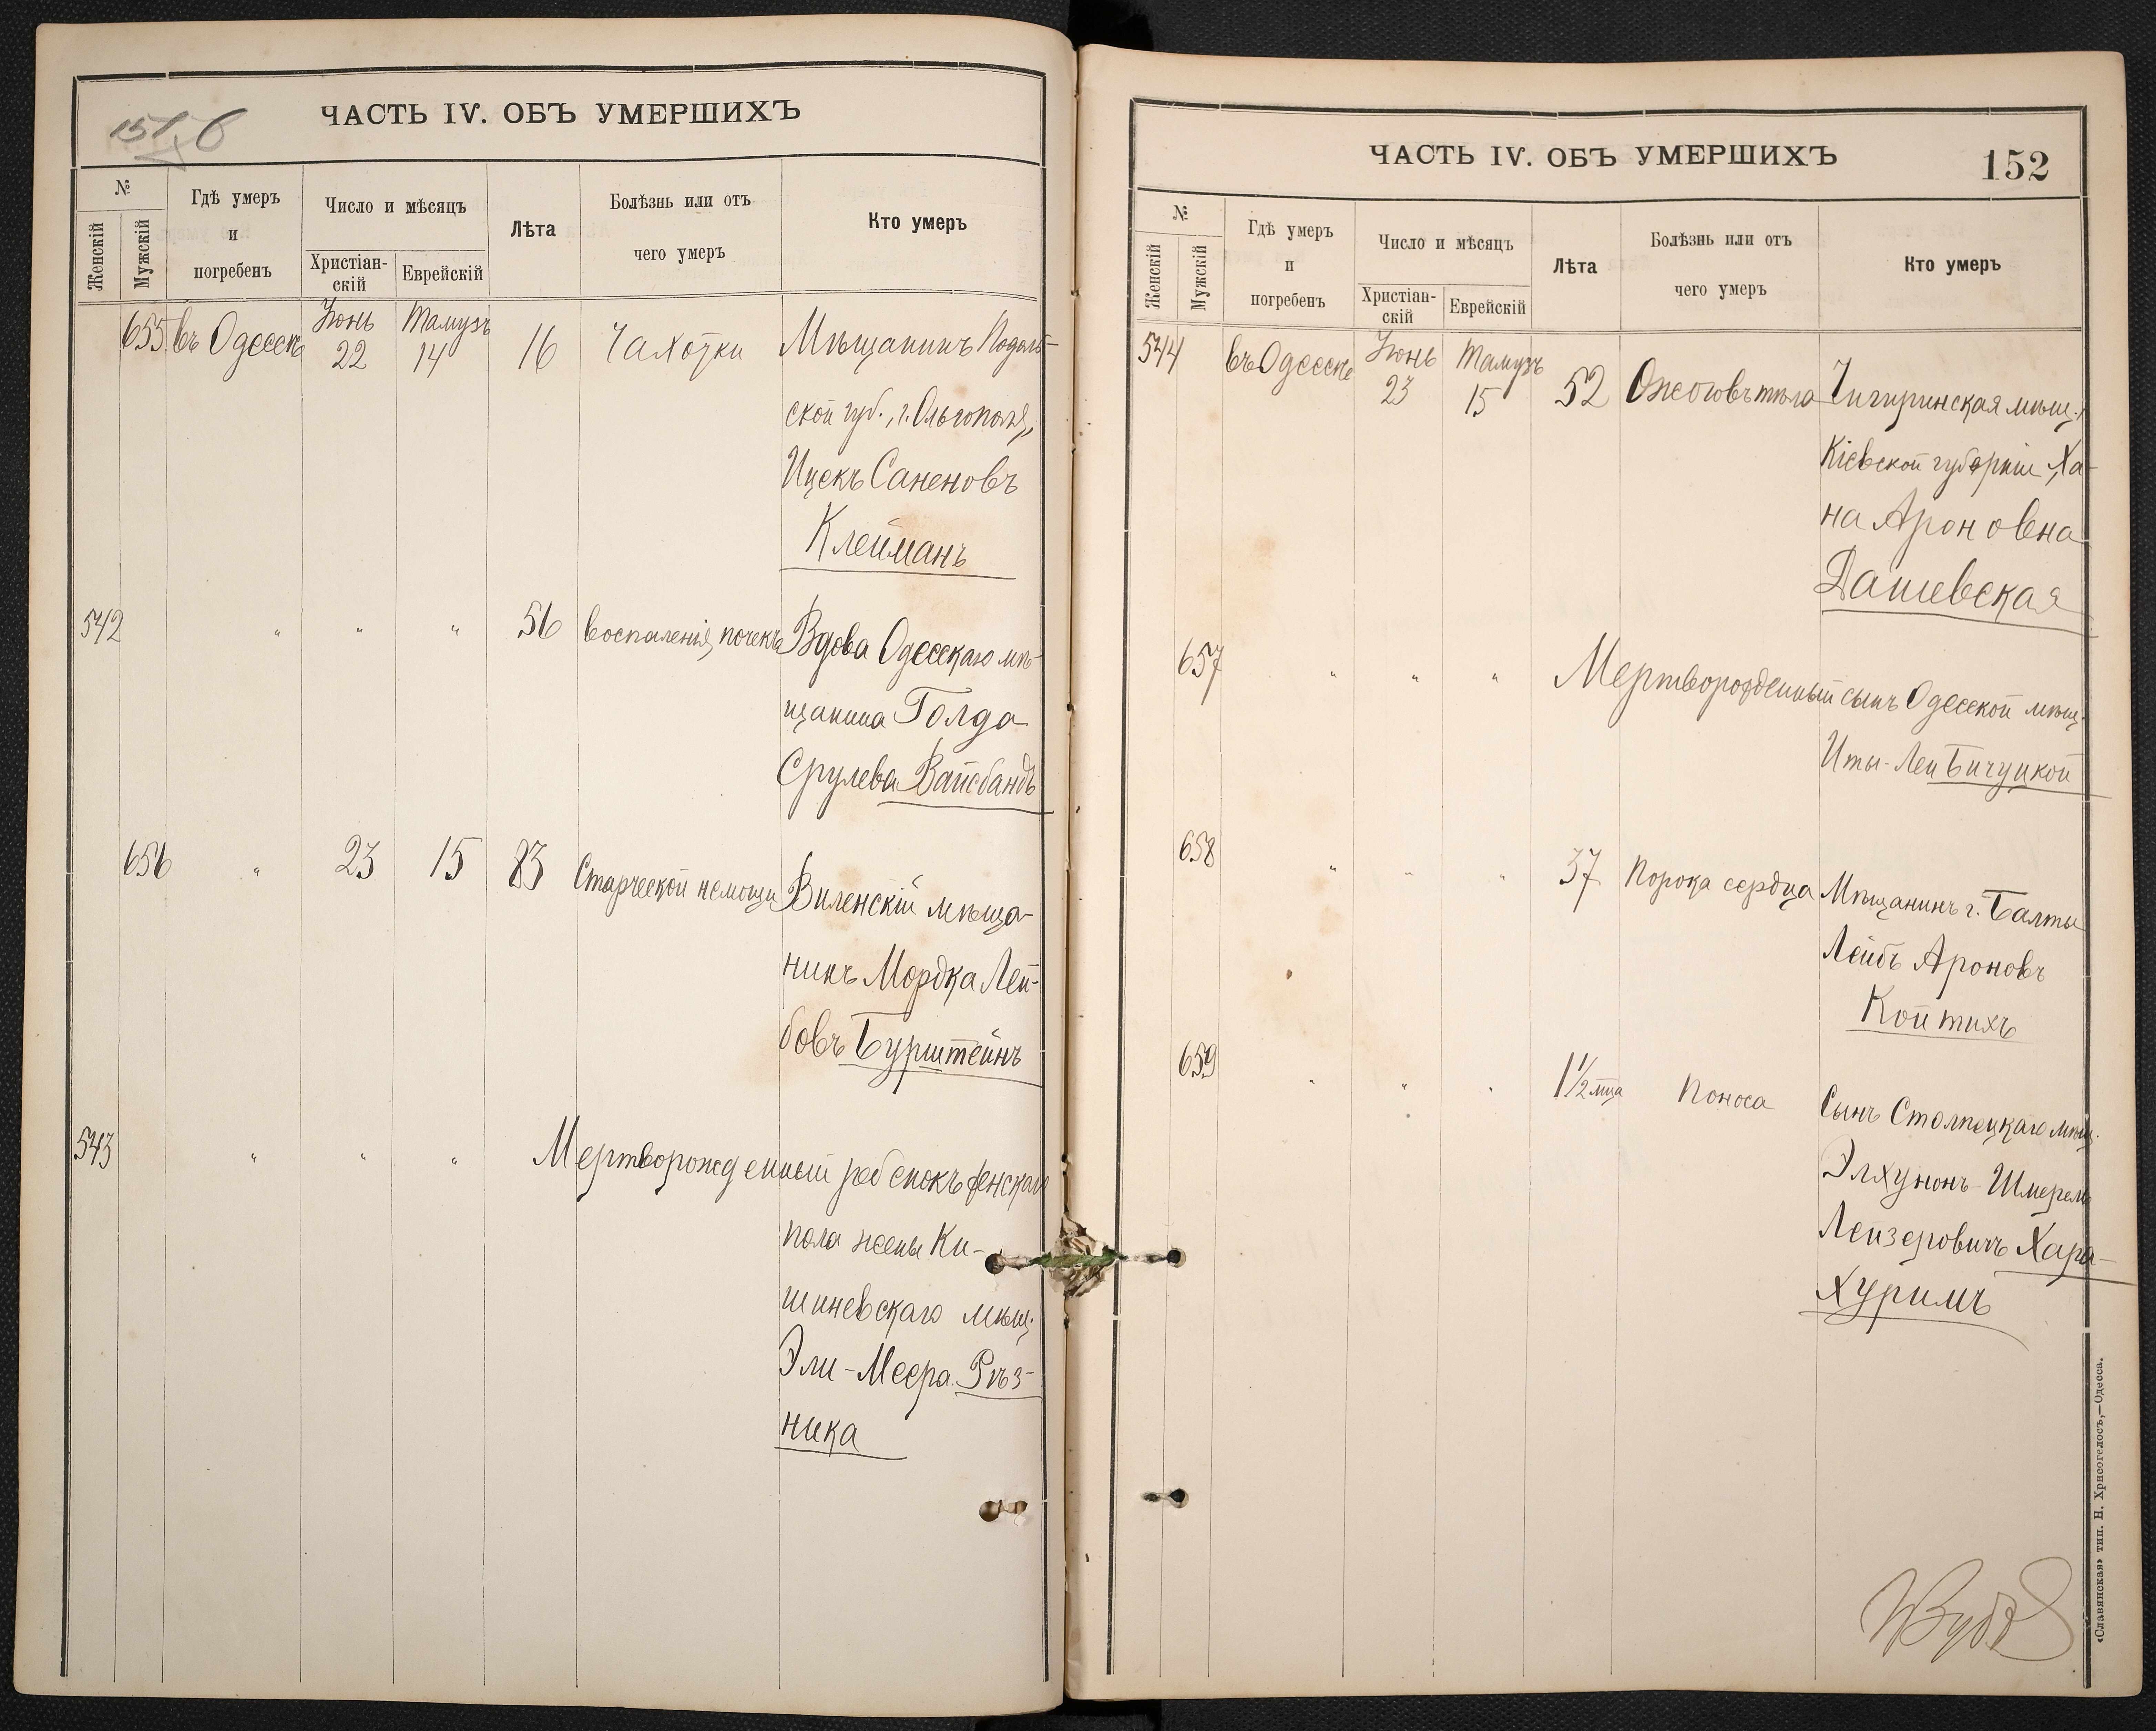 151 б
ЧАСТЬ IV. ОБЪ УМЕРШИХЪ
№
Женскій
Мужскій
Гдѣ умеръ
и
погребенъ
Число и мѣсяцъ
Христіан-
скій
Еврейскій
Лѣта
Болѣзнь или отъ
чего умеръ
Кто умеръ
655 въ Одессѣ Іюнь 22 Тамузъ 14 16 Чахотки Мѣщанинъ Подоль-
ской губ., г. Ольгополя,
Ицекъ Саненовъ
Клейманъ
542 " " " 56 Воспаленія почекъ Вдова Одесскаго мѣ-
щанина Голда
Срулева Вайсбандъ
656 " 23 15 83 Старческой немощи Виленскій мѣща-
нинъ Мордка Лей-
бовъ Бурштейнъ
543 " " " Мертворожденный ребенокъ женскаго
пола жены Ки-
шиневскаго мѣщ.
Эли-Меера Рѣз-
ника
ЧАСТЬ IV. ОБЪ УМЕРШИХЪ
152
№
Женскій
Мужскій
Гдѣ умеръ
и
погребенъ
Число и мѣсяцъ
Христіан-
скій
Еврейскій
Лѣта
Болѣзнь или отъ
чего умеръ
Кто умеръ
544 въ Одессѣ Іюнь 23 Тамузъ 15 52 Ожоговъ тѣла Чигиринская мѣщ.,
Кіевской губерніи, Ха-
на Ароновна
Дашевская
657 " " " Мертворожденный сынъ Одесской мѣщ.
Иты-Леи Бичуцкой
658 " " " 37 Порока сердца Мѣщанинъ г. Балты
Лейбъ Ароновъ
Койтихъ
659 " " " 1½ мца Поноса Сынъ Столпецкаго мѣщ.
Элхунонъ-Шмерель
Лейзеровичъ Хара-
хуримъ
«Славянская» тип. Н. Хрисогелосъ,—Одесса.